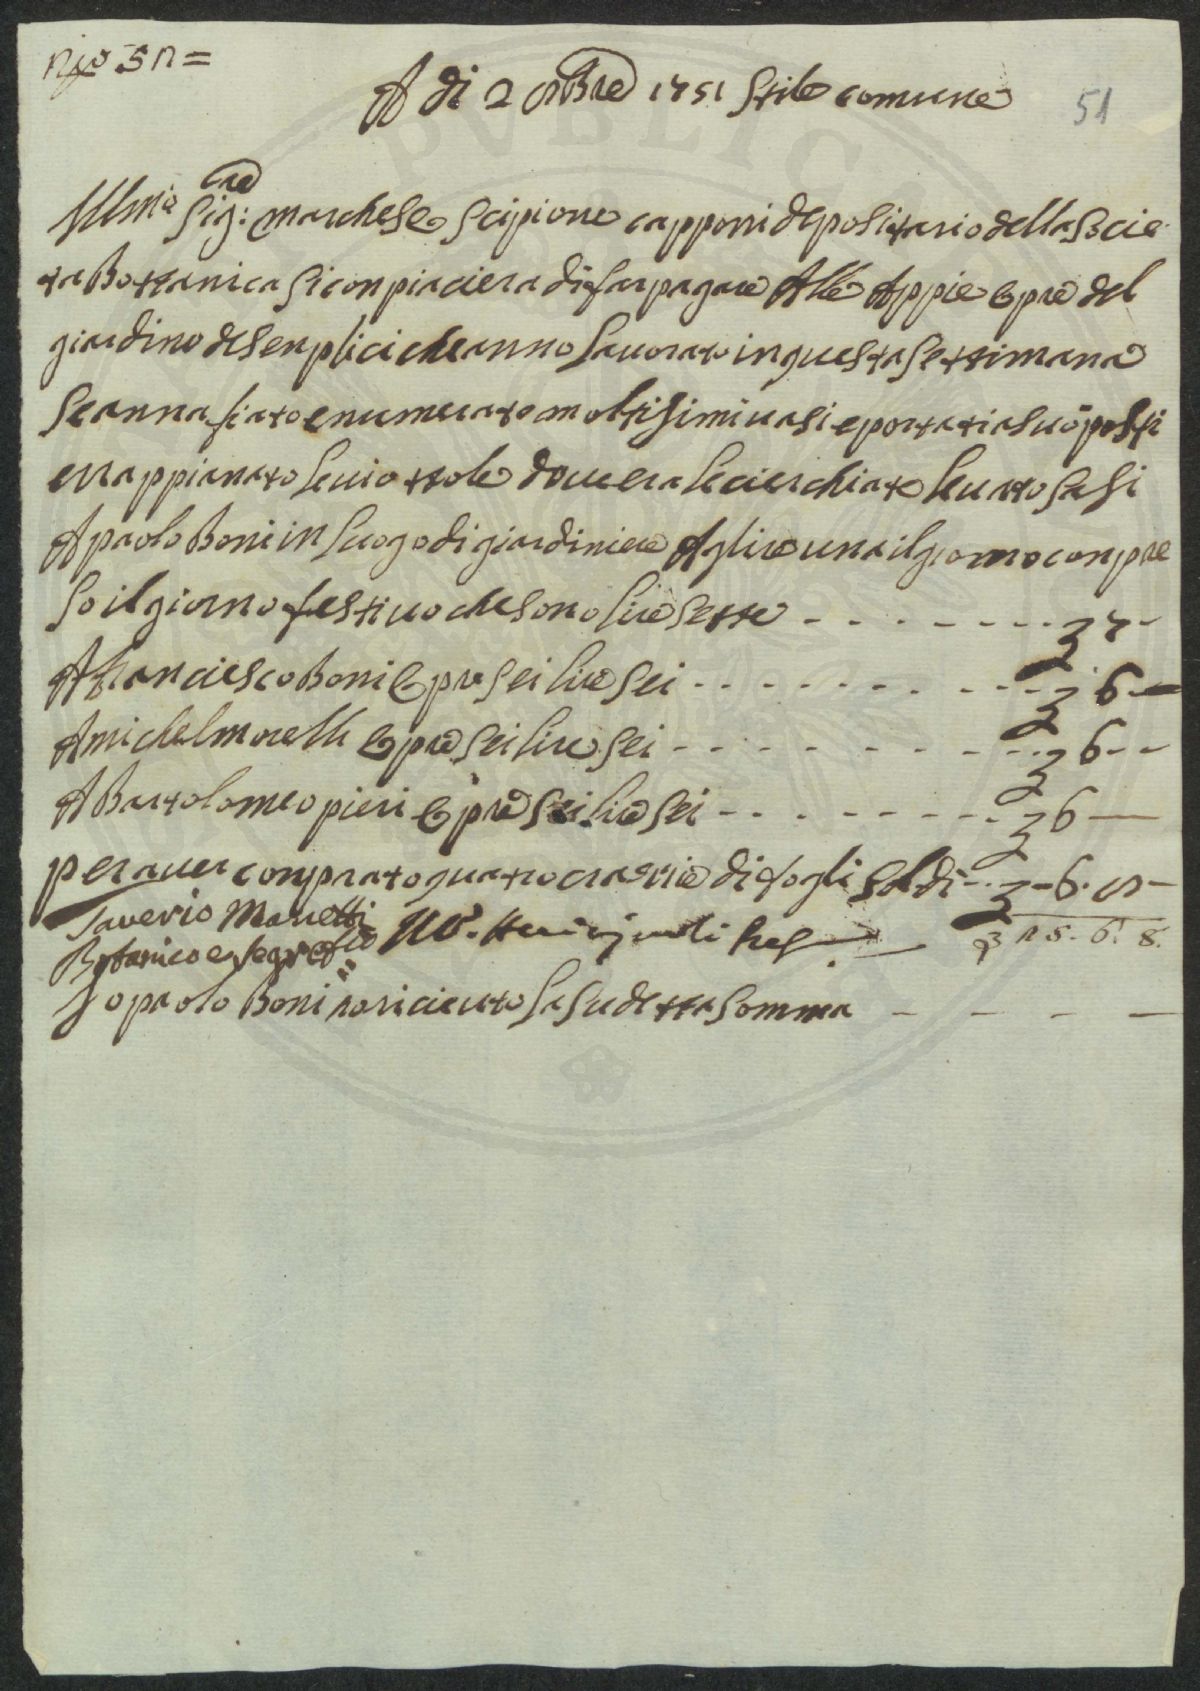 A di 2 8bre 1751 Stile comune
51
Illmo Sig:re marchese Scipione capponi depositario della Socie
ta Bottanica Si conpiaciera di far pagare Alle Appie Opre del
giardino de Senplici che anno lavorato in questa Settimana
Se anna fiato e numerato moltisimi vasi e portati a suo posti
e rappianato le viottole dove era le cierchiate levatto sasi
A paolo Boni in luogo di giardiniere A lire una il giorno conpre
so il giorno festivo che sono lire Sette - - - - - - - - 7 -
A franciesco Boni Opre Sei lire Sei - - - - - - - - - - 6 -
A michel morelli Opre Sei lire Sei - - - - - - - - - - 6 - -
A Bartolomeo pieri Opre Sei lire Sei - - - - - - - - - 6 -
per aver conprato quatro crazie di fogli Soldi - - - 6. 8 -
Saverio Manetti
Botanico e Segret.rio
25. 6. 8.
Io paolo Boni o ricieuto la sudetta Somma - - - -
PVBLIC